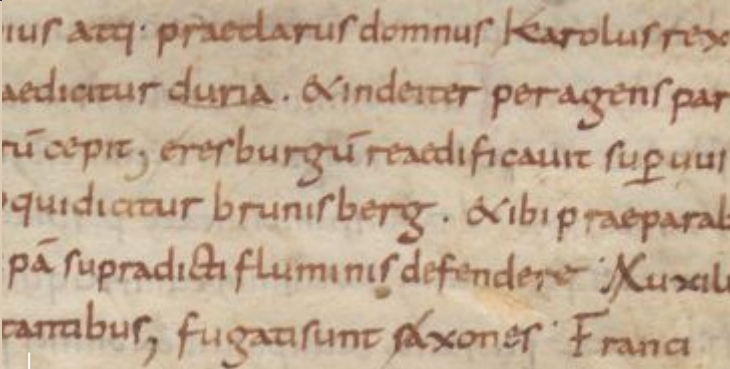 ius atq· praeclarus domnus karolus rex
aedicitur duria. &inde iter peragens par
rū cepit, eresburgū reaedificauit sup̱ uui
quidicitur brunisberg. &ibi praeparab
pā supradicti fluminis defendere· Auxili
tantibus, fugatisunt saxones· Franci